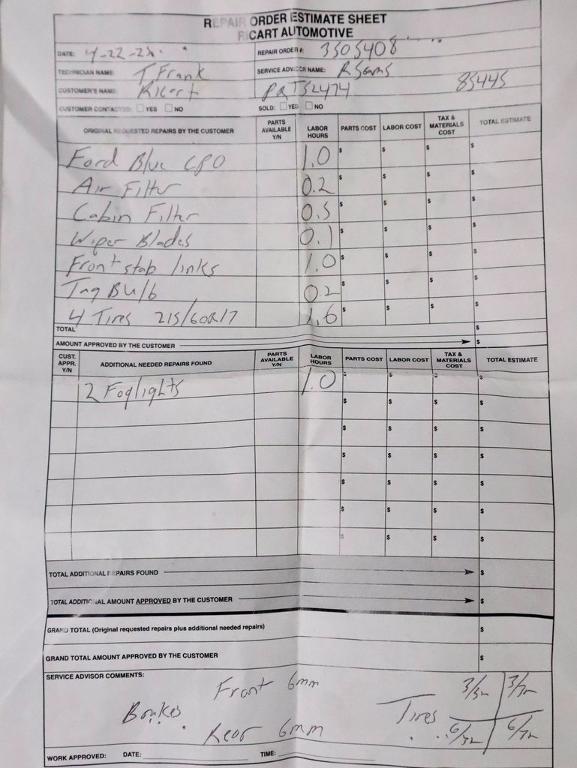 REPAIR ORDER ESTIMATE SHEET
RICART AUTOMOTIVE
DATE: 4-22-2 REPAIR ORDER #: 3505408
TECHNICIAN NAME T. Frank SERVICE ADVISOR NAME: R Sams
CUSTOMER'S NAME Ricart PRT52474 85445
CUSTOMER CONTACTED: YES NO SOLD: YES NO
ORIGINAL REQUESTED REPAIRS BY THE CUSTOMER PARTS AVAILABLE Y/N LABOR HOURS PARTS COST LABOR COST TAX & MATERIALS COST TOTAL ESTIMATE
Ford Blue CPO 1.0 $ $ $ $
Air Filter 0.2 $ $ $ $
Cabin Filter 0.5 $ $ $ $
Wiper Blades 0.1 $ $ $ $
Front stab links 1.0 $ $ $ $
Tag Bulb 0.2 $ $ $ $
4 Tires 215/60R17 1.6 $ $ $ $
TOTAL $
AMOUNT APPROVED BY THE CUSTOMER $
CUST. APPR. Y/N ADDITIONAL NEEDED REPAIRS FOUND PARTS AVAILABLE Y/N LABOR HOURS PARTS COST LABOR COST TAX & MATERIALS COST TOTAL ESTIMATE
2 Foglights 1.0 $ $ $ $
$ $ $ $
$ $ $ $
$ $ $ $
$ $ $ $
$ $ $ $
$ $ $ $
TOTAL ADDITIONAL REPAIRS FOUND $
TOTAL ADDITIONAL AMOUNT APPROVED BY THE CUSTOMER $
GRAND TOTAL (Original requested repairs plus additional needed repairs) $
GRAND TOTAL AMOUNT APPROVED BY THE CUSTOMER $
SERVICE ADVISOR COMMENTS:
Front 6mm 3/32 3/32
Brakes Tires
Rear 6mm 6/32 6/32
WORK APPROVED: DATE: TIME: